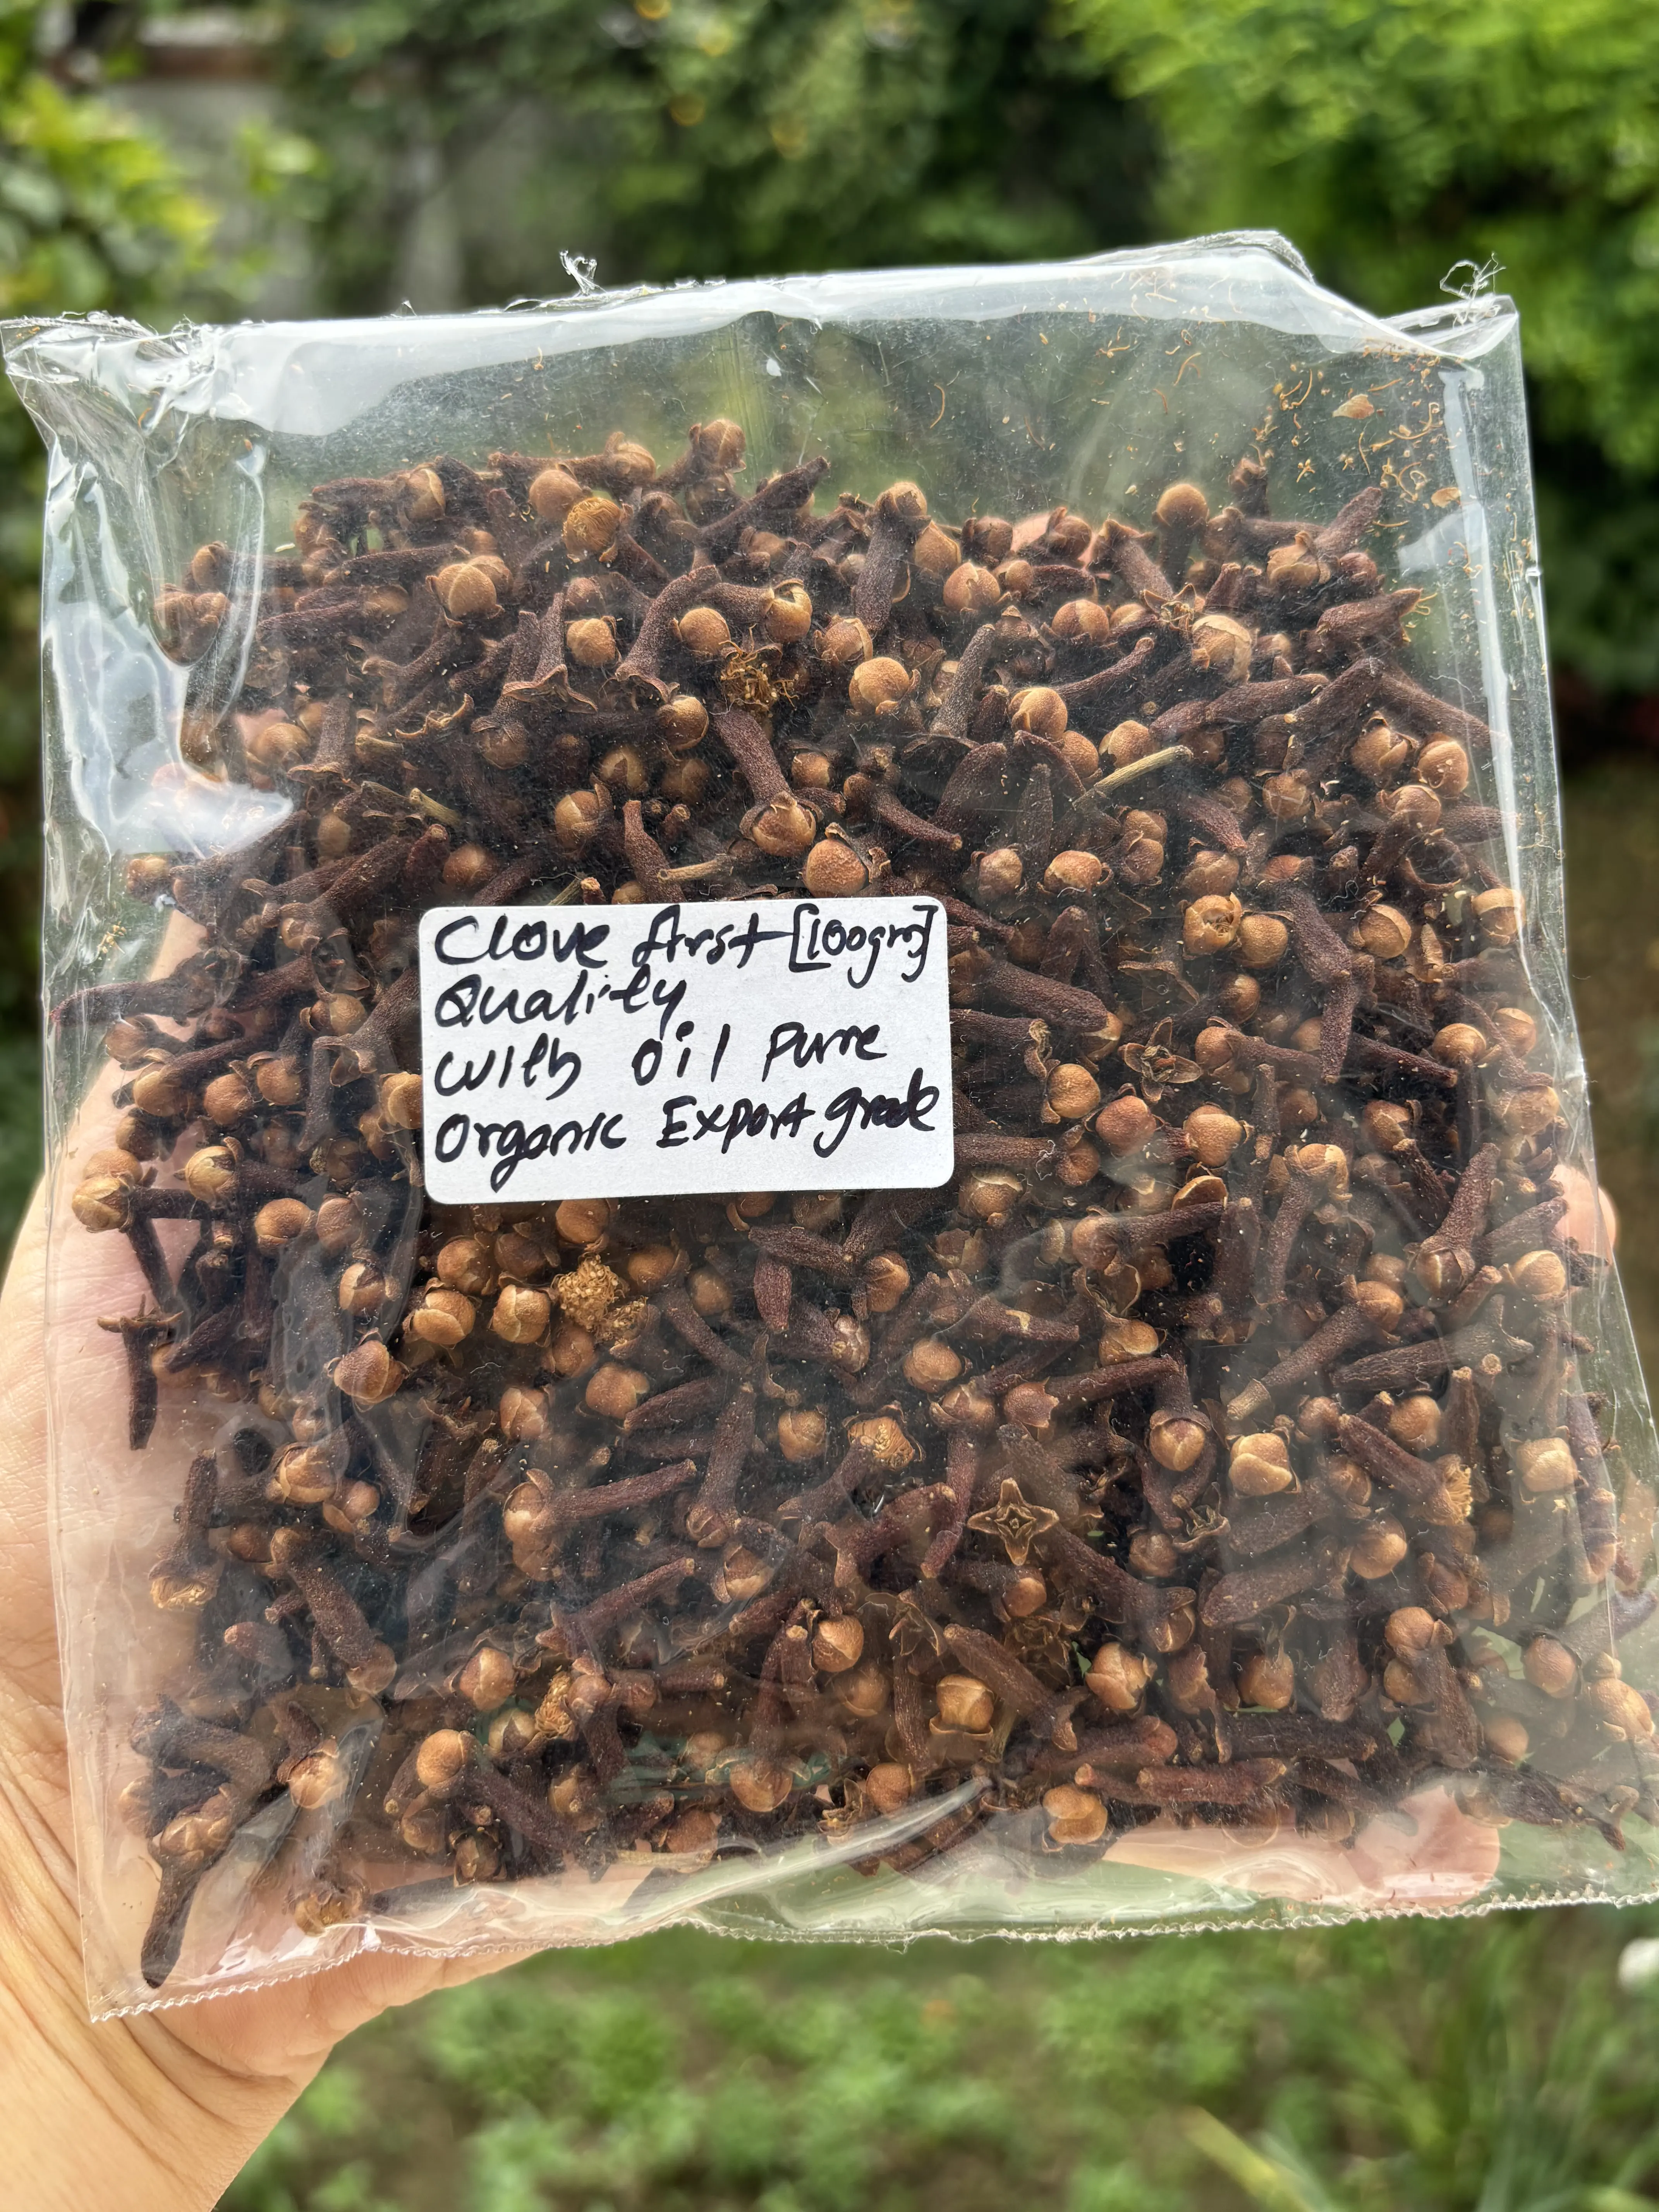 Clove first [100gm]
Quality
With Oil Pure
Organic Export grade